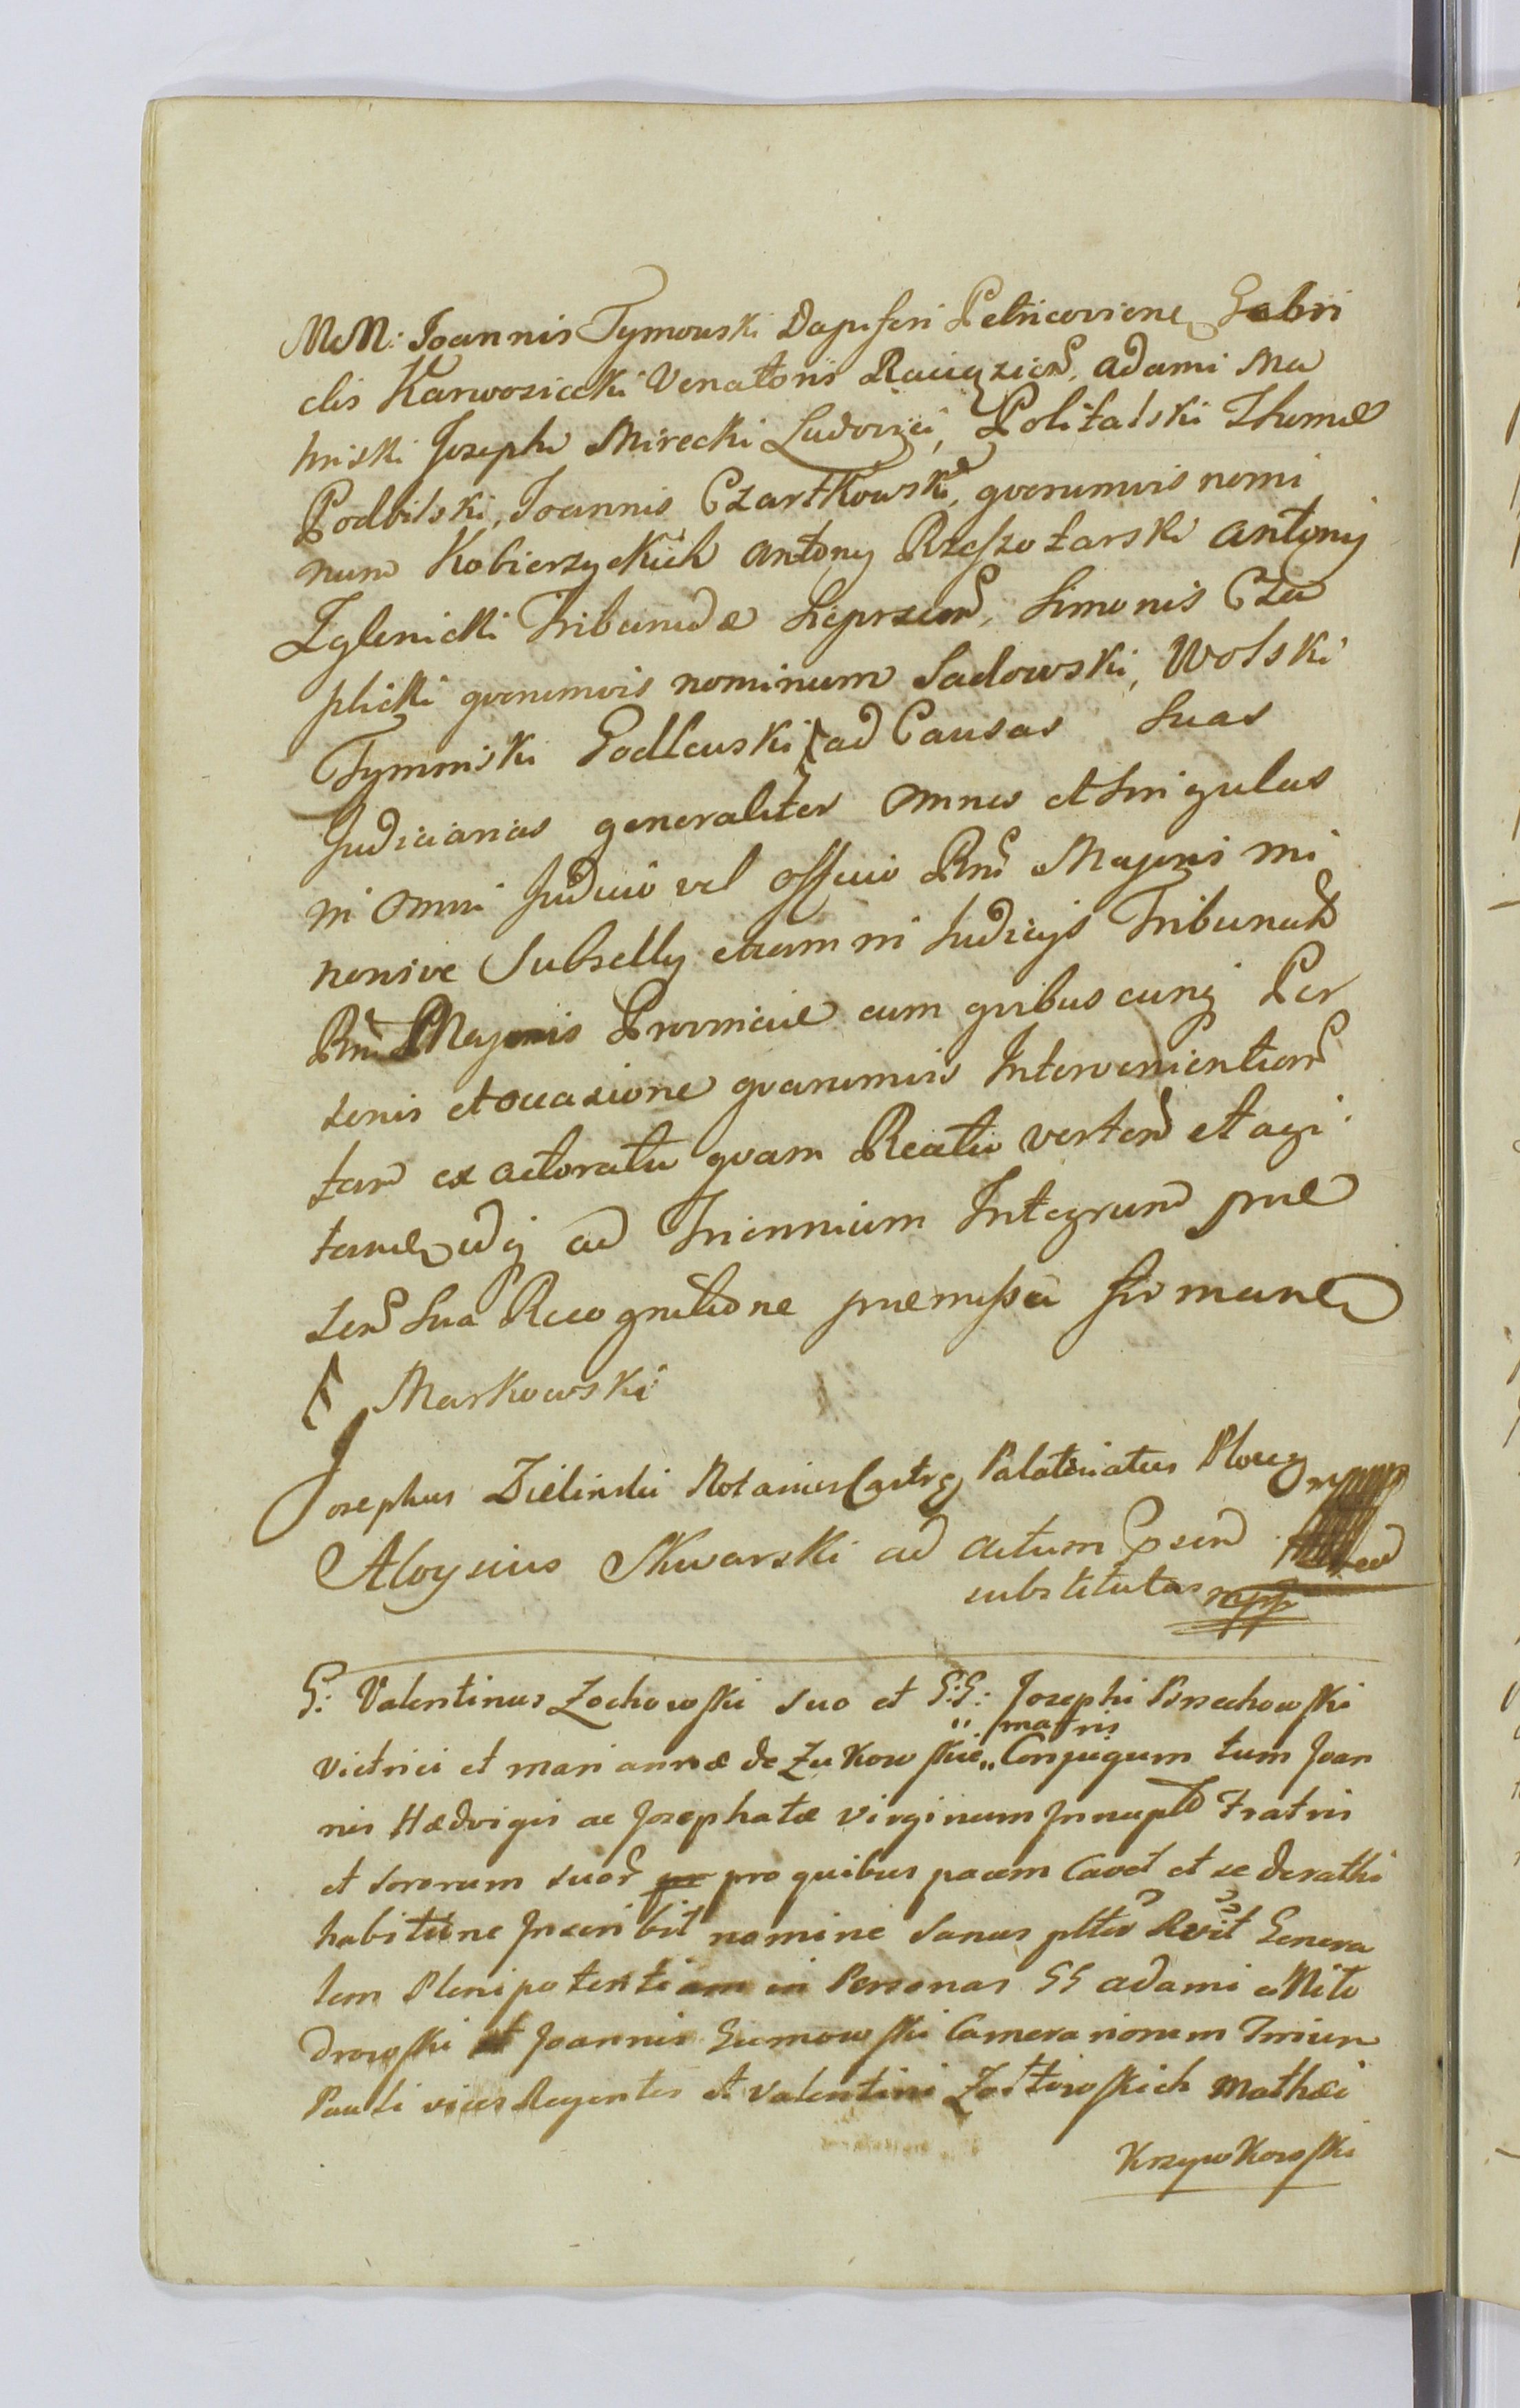 MM: Joannis Tymowski Dapiferi Petricoviens, Gabri
elis Karwosiecki Venatoris Raciążien, Adami Ma
linski Josephi Mirecki Ludovici, Politalski Thomæ
Podbilski, Joannis Czartkowski, qvorumvis nomi
num Kobierzyckich Antony Rzeszotarski Antony
Zglenicki Tribunidæ Sieprzen, Simonis Cza
plicki qvorumvis nominum Sadowski, Wolski
Tyminski Podlewski ad Causas Suas
Judiciarias generaliter omnes et Singulas
in omni Judicio vel Officio Rni Majoris mi
norisve Subselly etiam in Judicijs Tribunal
Rni Majoris Provinciæ cum qvibuscunq Per
sonis et occasione qvarumvis Intervenientium
tam ex actoratu qvam Reatu verten et agi
tan idq ad Triennium Integrum præ
sen Sua Recognitione præmissa firmane
Markowski
Josephus Zielinski Notarius Castrs Palatinatus Ploceg mpp
Aloysius Skwarski ad Actum Psen
substitutus mpp
G: Valentinus Zochowski suo et G:G: Josephi
matris
Victrici et Mariannæ de Zukowskie Conjugum tum Joan
nis Hædvigis ac Josephatæ Virginum Innupt Fratris
et Sororum suor pro quibus pacem Cavet et se de rathi
habitione Inscribit nomine Sanus pltr Rvit Genera
lem Plenipotentiam in Personas GG Adami
drowski et Joannis Gumowski Camerariorum
Pauli vices Regentis et Valentini Mathæi
Krzywkowski